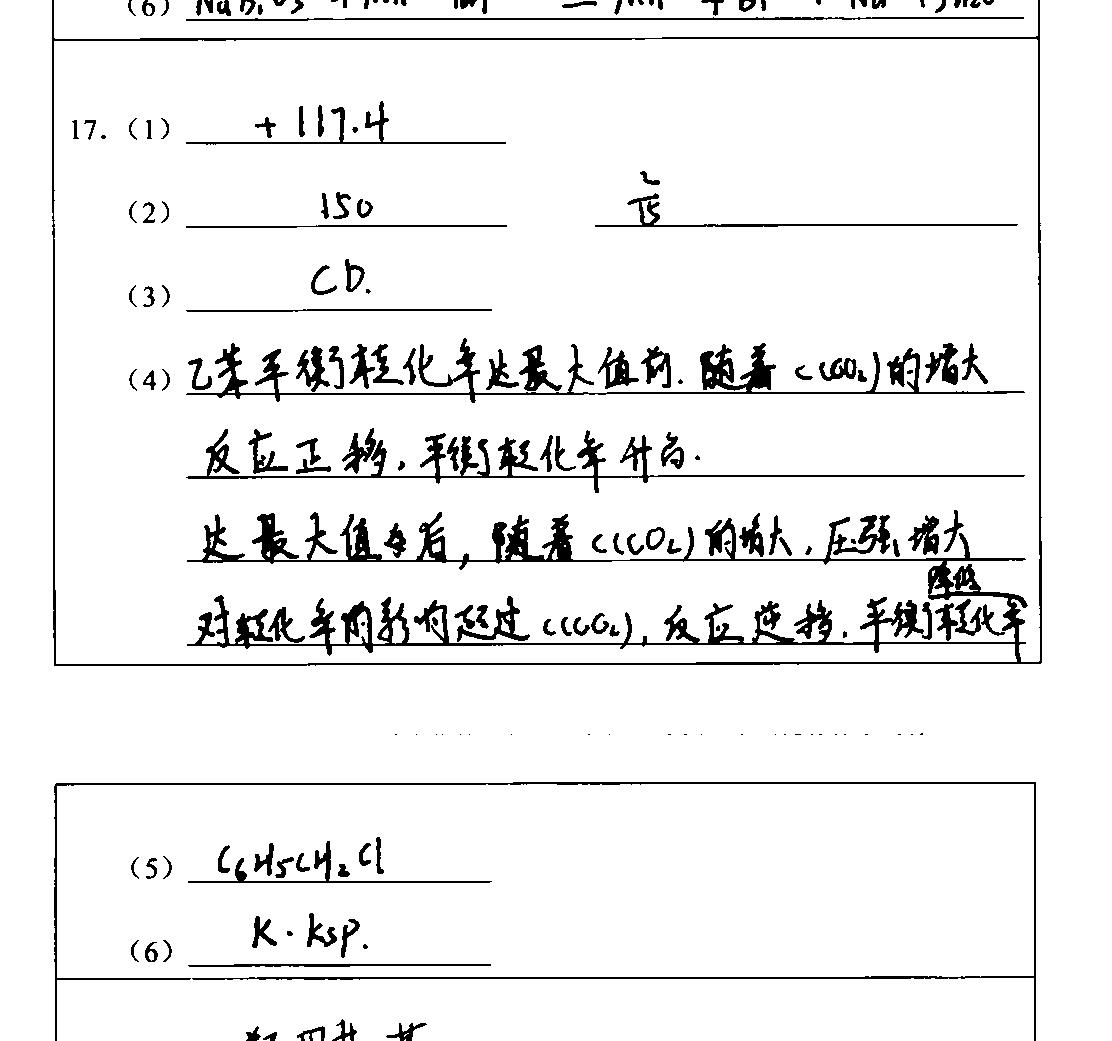 (6)
17. (1) +117.4
(2) 150 2/15
(3) CD.
(4) 乙苯平衡转化率达最大值前. 随着c(CO₂)的增大
反应正移, 平衡转化率升高.
达最大值后, 随着c(CO₂)的增大, 压强增大
对转化率的影响超过c(CO₂), 反应逆移. 平衡转化率降低
(5) C₆H₅CH₂Cl
(6) K·Ksp.